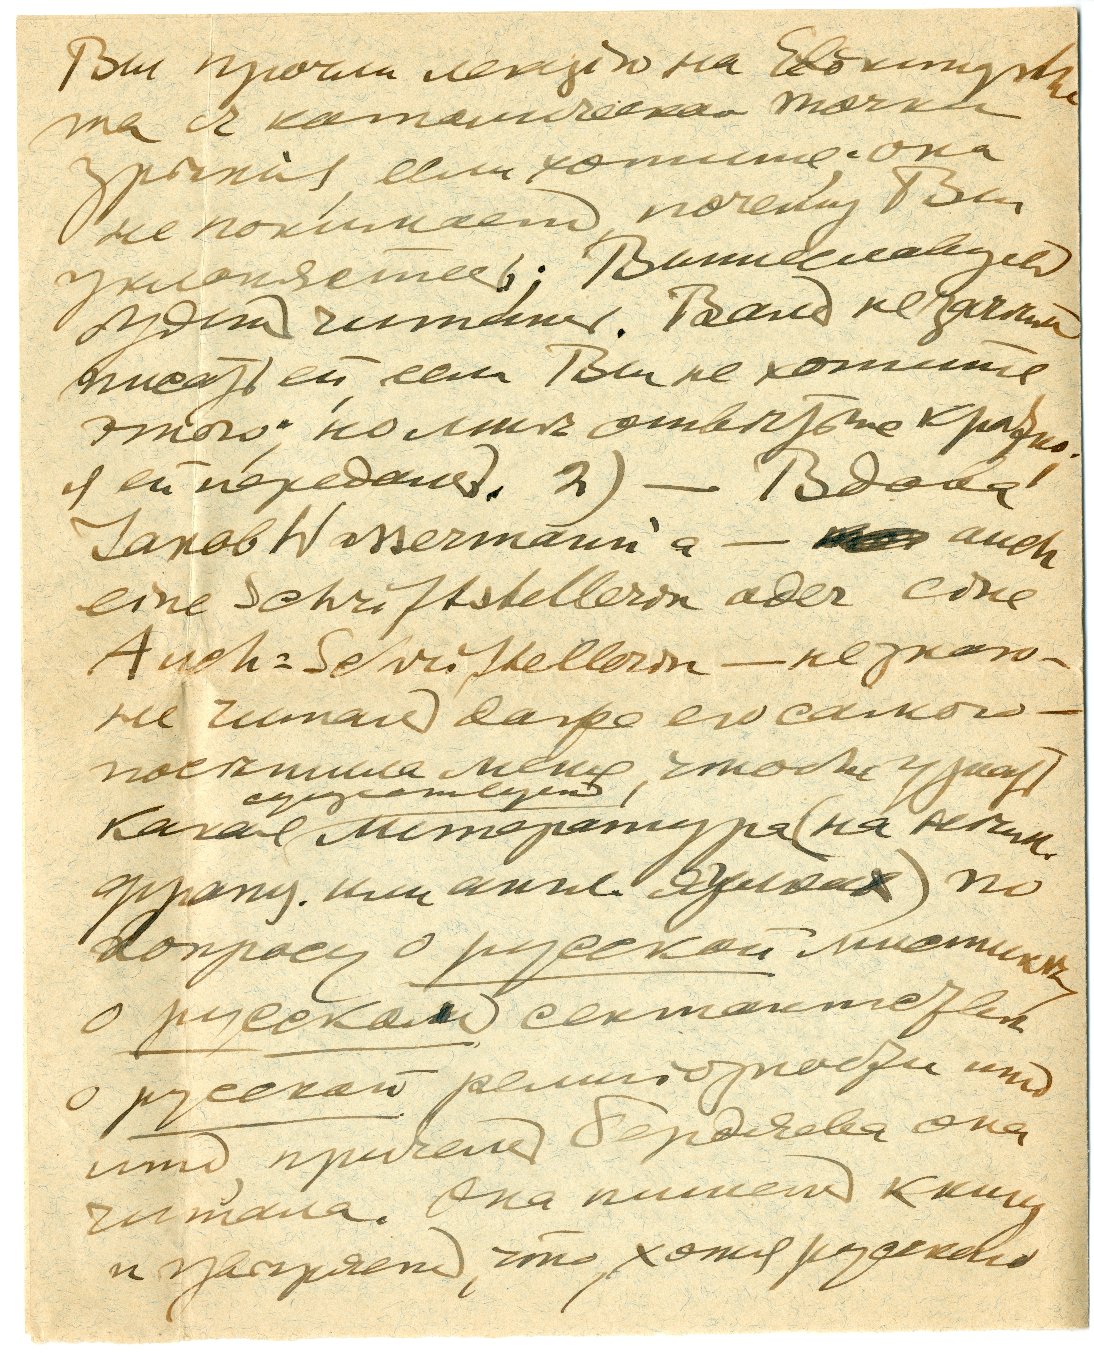 Вы прочли лекцію на
та съ католической точки
зрѣнія, если хотите; она
не понимаетъ, почему Вы
уклоняетесь; Вышеславцевъ
будетъ читать. Вамъ незачѣмъ
писать ей, если Вы не хотите
этого; но мнѣ отвѣтьте кратко,
я ей передамъ. 2) — Вдова
Jakob Wassermann'а — auch
eine Schriftstellerin oder eine
Auch=Schriftstellerin — не знаю —
не читалъ даже его самого —
посѣтила меня, чтобы узнать
существуетъ
какая литература (на нѣмец.
франц. или англ. языкахъ) по
вопросу о русской мистикѣ,
о русскомъ сектантствѣ,
о русской религіозности итд
итд, причемъ Бердяева она
читала. Она пишетъ книгу
и увѣряетъ, что, хотя русскаго